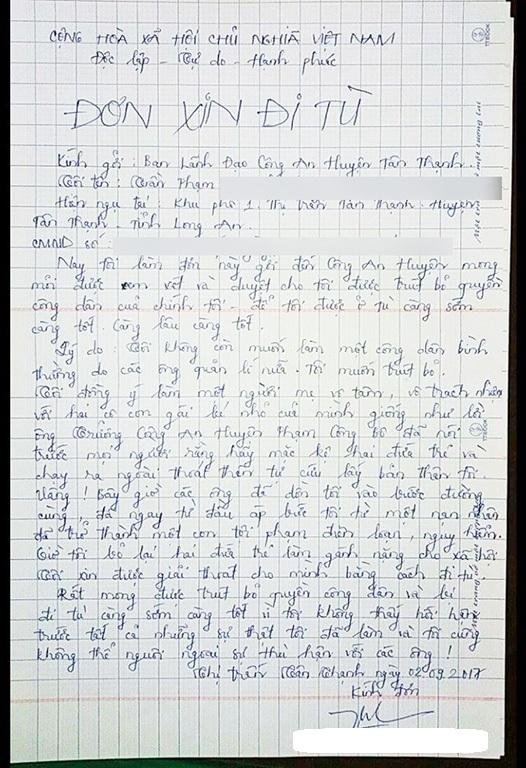 CỘNG HOÀ XÃ HỘI CHỦ NGHĨA VIỆT NAM
Độc lập - Tự do - Hạnh phúc
ĐƠN XIN ĐI TÙ
Kính gởi : Ban Lãnh Đạo Công An Huyện Tân Thạnh.
Tôi tên : Trần Phạm
Hẩn ngụ tại : Khu phố 1. Thị trấn Tân Thạnh. Huyện
Tân Thạnh. Tỉnh Long An.
CMND số :
Nay tôi làm đơn này gởi đến Công An Huyện mong
mỏi được xem xét và duyệt cho tôi được truất bỏ quyền
công dân của chính tôi - để tôi được ở tù càng sớm
càng tốt. Càng lâu càng tốt.
Lý do : Tôi không còn muốn làm một công dân bình
thường do các ông quản lí nữa. Tôi muốn truất bỏ.
Tôi đồng ý làm một người mẹ vô tâm, vô trách nhiệm
với hai cô con gái bé nhỏ của mình giống như lời
ông Trưởng Công An Huyện Phạm Công Bô đã nói
trước mọi người rằng hãy mặc kệ hai đứa trẻ và
chạy ra ngoài thoát thân tự cứu lấy bản thân tôi.
Vâng ! Bây giờ các ông đã dồn tôi vào bước đường
cùng, đã ngay từ đầu áp bức tôi từ một nạn nhân
đã trở thành một con tội phạm điên loạn, nguy hiểm.
Giờ tôi bỏ lại hai đứa trẻ làm gánh nặng cho xã hội
Tôi xin được giải thoát cho mình bằng cách đi tù.
Rất mong được truất bỏ quyền công dân và
đi tù càng sớm càng tốt vì tôi không thấy hối hận
trước tất cả những sự thật tôi đã làm và tôi cũng
không thể nguôi ngoai sự thù hận với các ông !
Thị trấn Tân Thạnh ngày 02.09.2017
Kính đơn